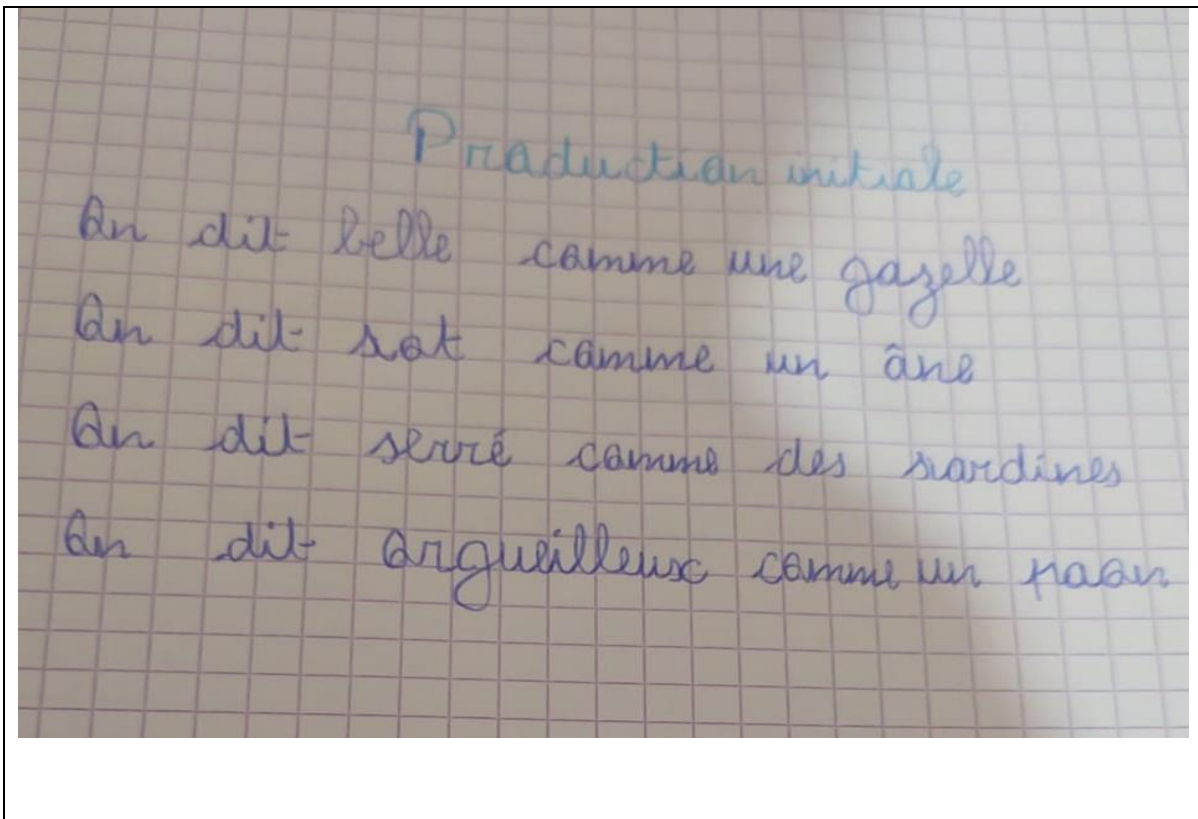 Production initiale
On dit belle comme une gazelle
On dit sot comme un âne
On dit serré comme des sardines
On dit orgueilleux comme un paon